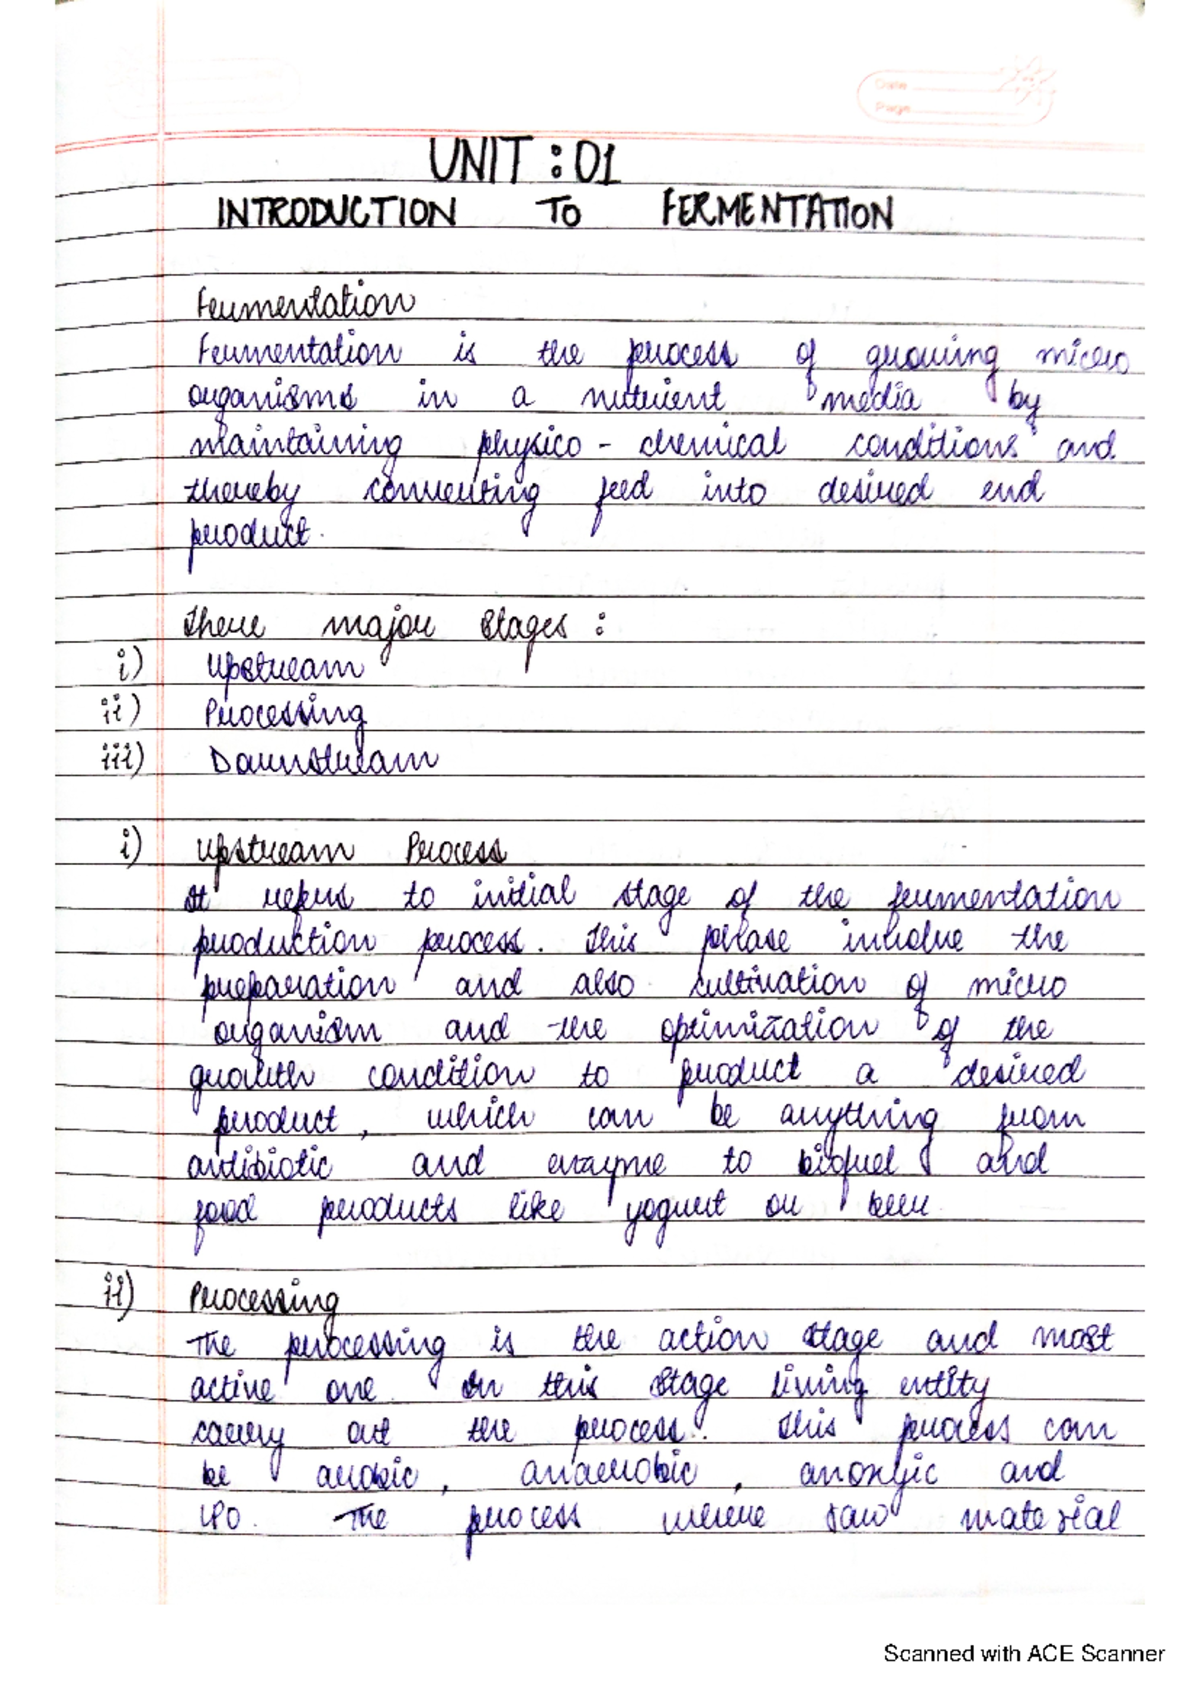 Date
Page
UNIT : 01
INTRODUCTION TO FERMENTATION
Fermentation
Fermentation is the process of growing micro
organisms in a nutrient media by
maintaining physico - chemical conditions and
thereby converting feed into desired end
product.
There major stages :
i) Upstream
ii) Processing
iii) Downstream
i) Upstream Process
It refers to initial stage of the fermentation
production process. This phase involve the
preparation and also cultivation of micro
organism and the optimization of the
growth condition to product a desired
product, which can be anything from
antibiotic and enzyme to biofuel and
food products like yogurt or beer.
ii) Processing
The processing is the action stage and most
active one. In this stage living entity
carry out the process. This process can
be aerobic, anaerobic, anoxyic and
The process where raw material
Scanned with ACE Scanner